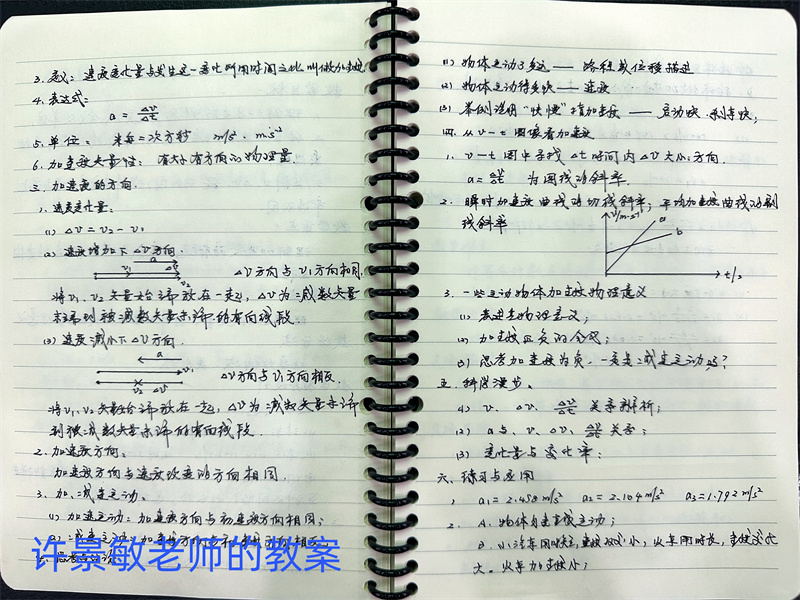 3. 定义：速度变化量与发生这一变化所用时间之比叫做加速度
4. 表达式：
a = Δv/Δt
5. 单位： 米每二次方秒 m/s² m·s⁻²
6. 加速度矢量性： 有大小有方向的物理量
三. 加速度的方向.
1. 速度变化量：
(1) Δv = v₂ - v₁
(2) 速度增加下Δv方向.
a
v₁ Δv
v₂
Δv方向与v₁方向相同.
将v₁、v₂矢量始端放在一起，Δv为减数矢量
末端到被减数矢量末端的有向线段.
(3) 速度减小下Δv方向.
a
v₁
v₂ Δv
Δv方向与v₁方向相反.
将v₁、v₂矢量始端放在一起，Δv为减数矢量末端
到被减数矢量末端的有向线段.
2. 加速度方向：
加速度方向与速度改变的方向相同.
3. 加、减速运动.
(1) 加速运动：加速度方向与初速度方向相同；
许景敏老师的教案
(1) 物体运动了多远 —— 路程或位移描述
(2) 物体运动得多快 —— 速度
(3) 举例说明“快慢”指加速度 —— 启动快、刹车快；
四. 从v-t图像看加速度
1. v-t图中寻找Δt时间内Δv大小、方向.
a = Δv/Δt 为图线的斜率.
2. 瞬时加速度曲线的切线斜率；平均加速度曲线的割
线斜率
v/(m·s⁻¹)
a
b
t/s
3. 一些运动物体加速度物理意义
(1) 表述其物理意义；
(2) 加速度正负的含义；
(3) 思考加速度为负，一定是减速运动吗？
五. 科学漫步.
(1) v、Δv、Δv/Δt 关系解析；
(2) a与v、Δv、Δv/Δt 关系；
(3) 变化量与变化率；
六、练习与应用
1. a₁ = 2.458 m/s² a₂ = 2.104 m/s² a₃ = 1.792 m/s²
2. A. 物体匀速直线运动；
大。火车加速度小；